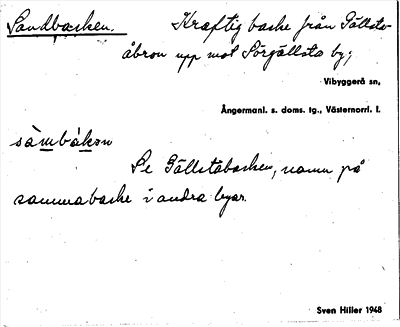 Sandbacken. Kraftig backe från Gällsta-
åbron upp mot Sörgällsta by;
Vibyggerå sn,
Ångermanl. s. doms. tg., Västernorrl. l.
sàmbákɐn
Se Gällstabacken, namn på
samma backe i andra byar.
Sven Hiller 1948